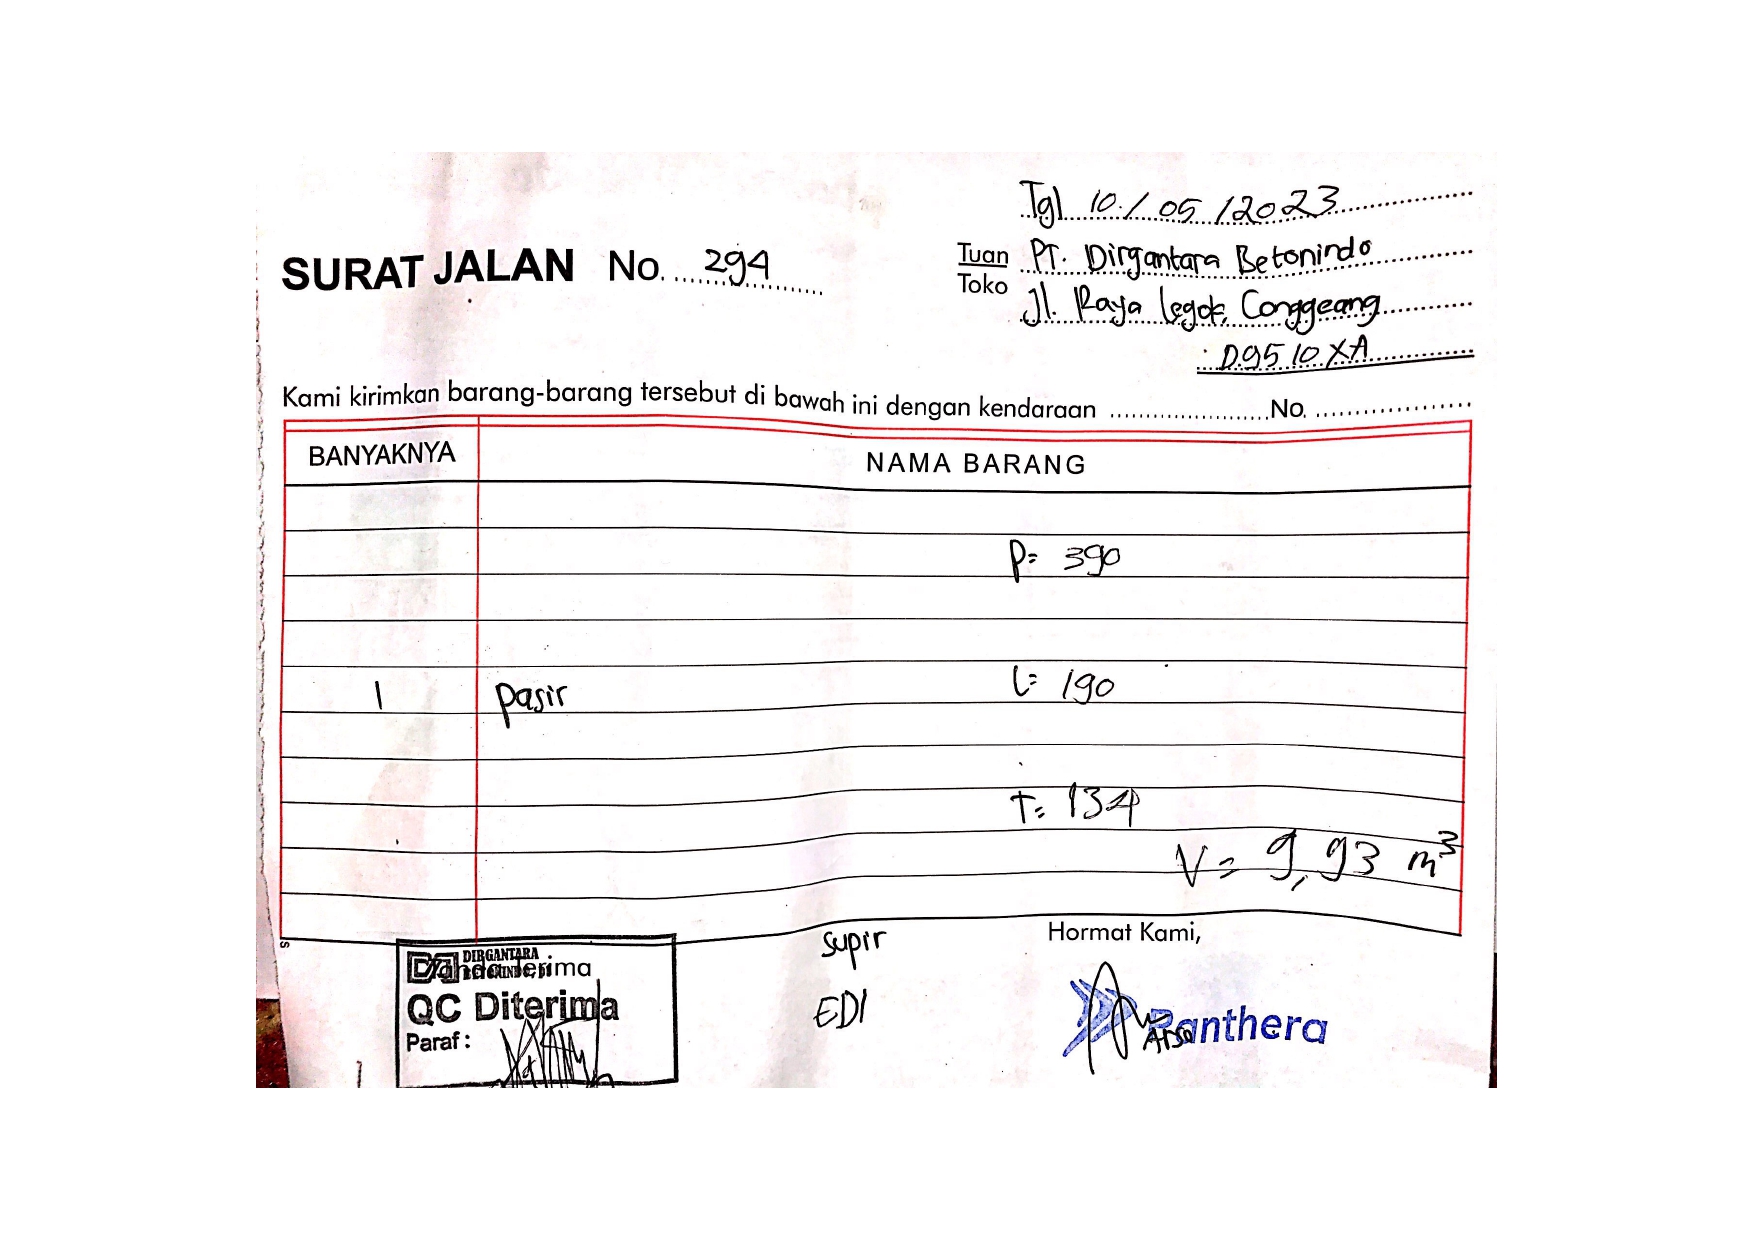 Tgl 10/05/2023
SURAT JALAN No. 294
Tuan PT. Dirgantara Betonindo
Toko Jl. Raya Legok, Conggeang
D 9510 XA
Kami kirimkan barang-barang tersebut di bawah ini dengan kendaraan ..................... No. ...................
BANYAKNYA NAMA BARANG
P= 390
1 pasir L= 190
T= 134
V= 9,93 m³
supir Hormat Kami,
EDI
DIRGANTARA
QC Diterima
Paraf :
Panthera